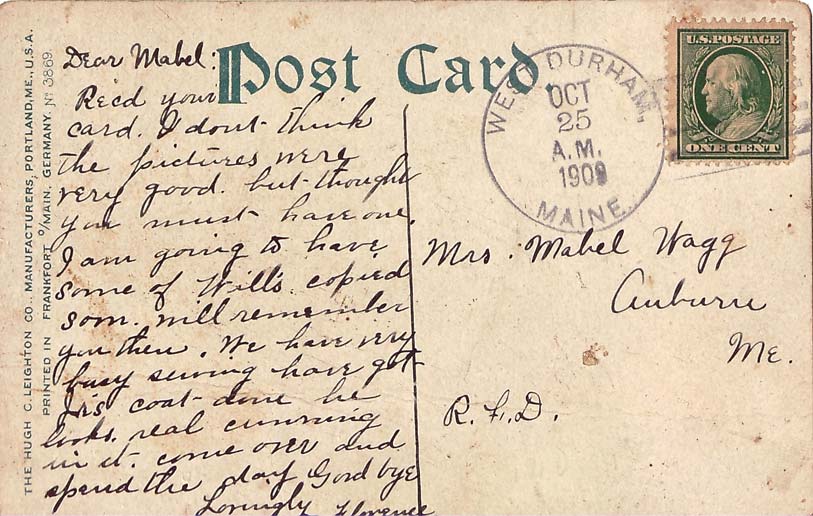 THE HUGH C. LEIGHTON CO., MANUFACTURERS, PORTLAND, ME., U.S.A.
PRINTED IN FRANKFORT O/MAIN, GERMANY. No 3869
Post Card
Dear Mabel:
Recd your
card. I dont think
the pictures were
very good. but thought
you must have one.
I am going to have
some of Will's copied
som. will remember
you then. We have very
busy sewing have got
Jr's coat done he
looks real cunning
in it. come over and
spend the day Good bye
Lovingly Florence
WEST DURHAM,
OCT
25
A.M.
1909
MAINE
U.S. POSTAGE
ONE CENT
Mrs. Mabel Wagg
Auburn
Me.
R.F.D.